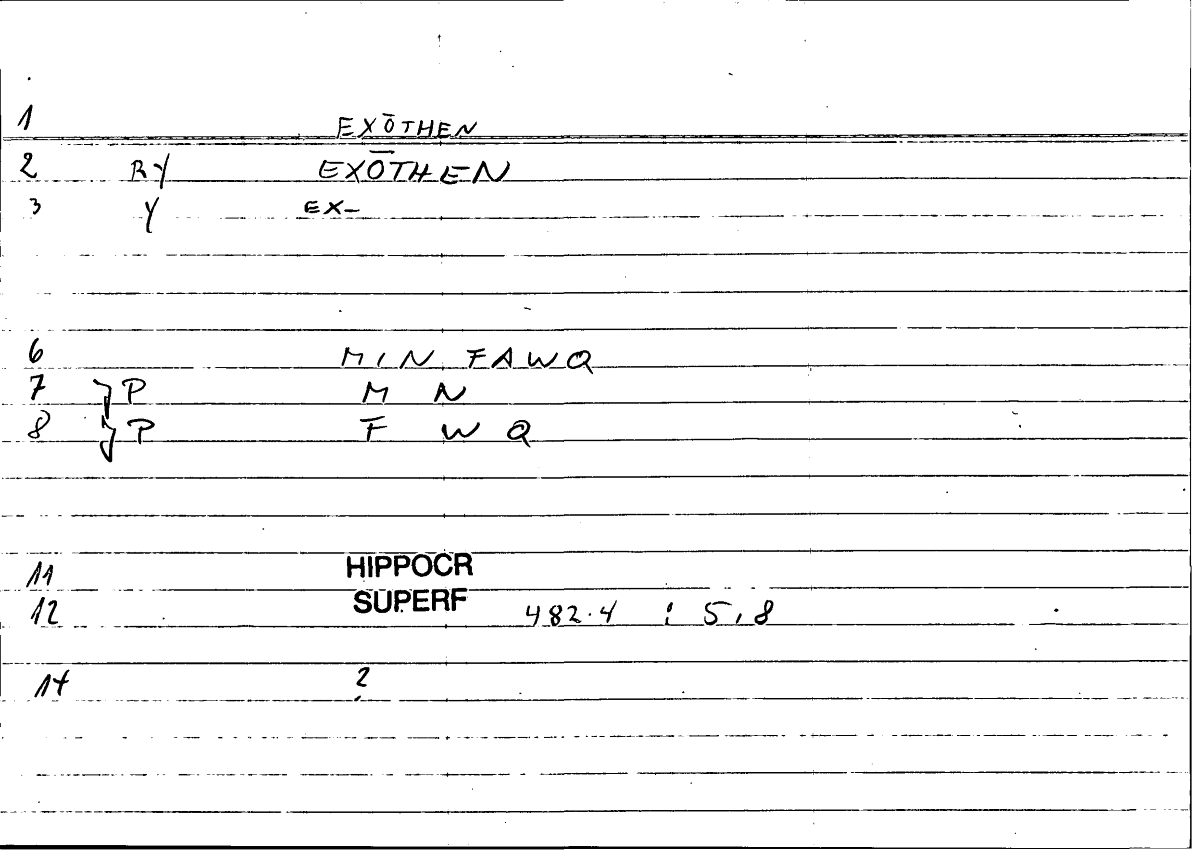 1 EXŌTHEN
2 RY EXŌTHEN
3 Y EX–
6 MIN FAWQ
7 }P M N
8 }P F W Q
11 HIPPOCR
12 SUPERF 482.4 : 5,8
14 ?